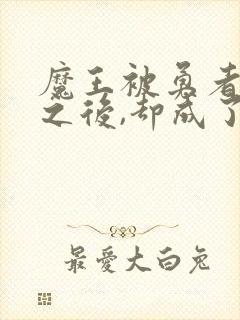 魔王被勇者
之後,却成了
最愛大白兔